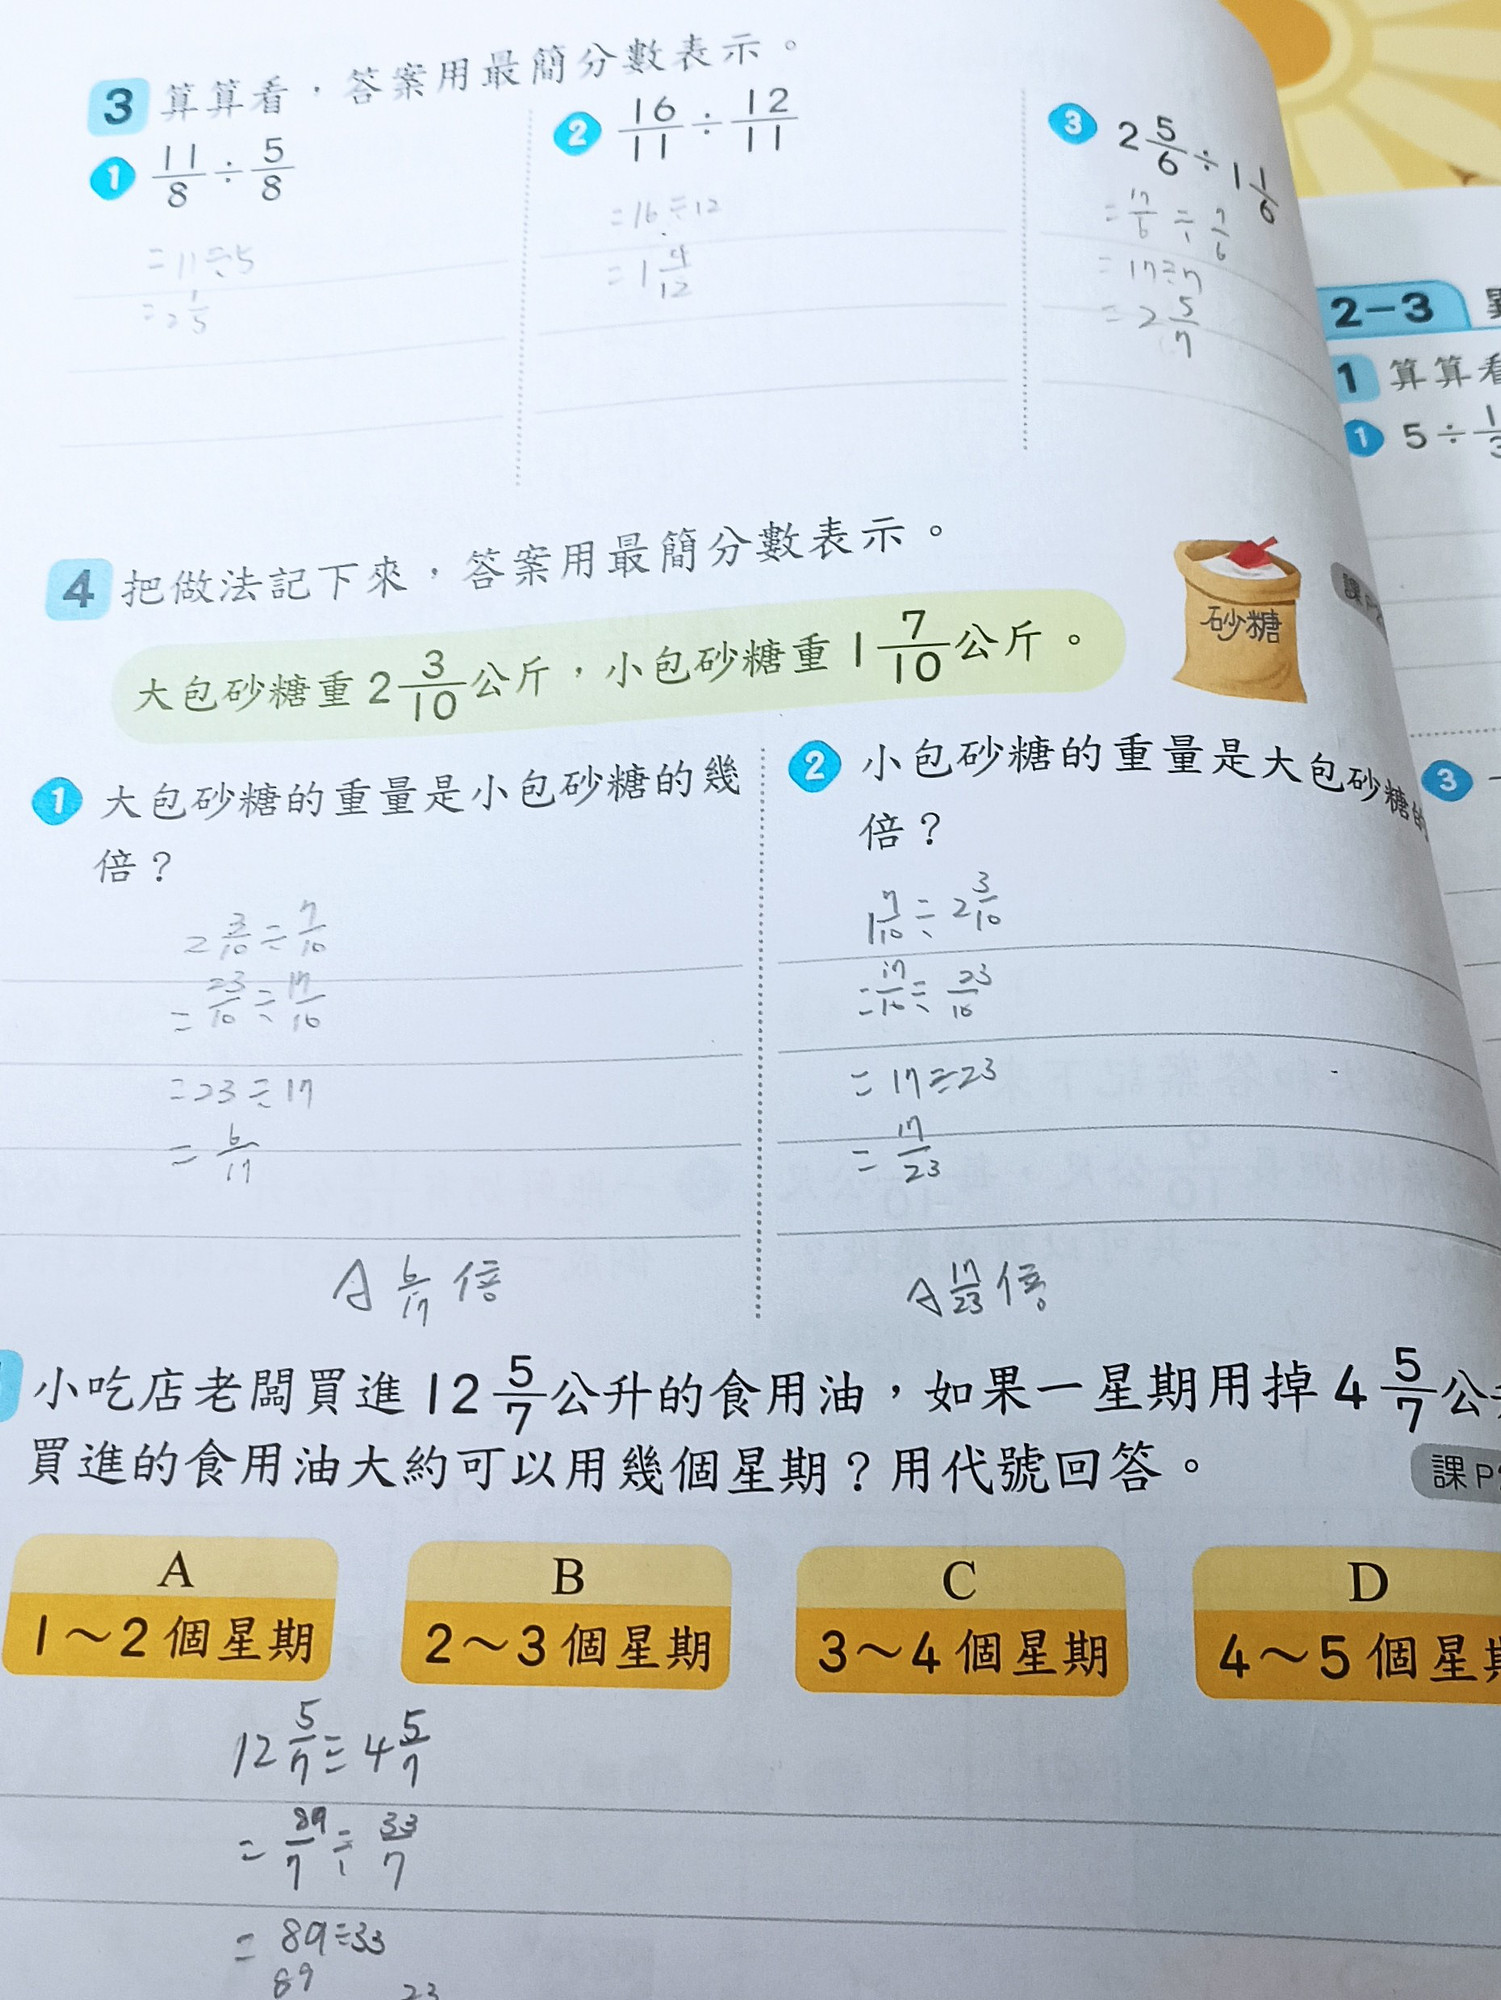 3 算算看，答案用最簡分數表示。
① 11/8 ÷ 5/8
= 11 ÷ 5
= 2 1/5
② 16/11 ÷ 12/11
= 16 ÷ 12
= 1 4/12
③ 2 5/6 ÷ 1 1/6
= 17/6 ÷ 7/6
= 17 ÷ 7
= 2 5/7
4 把做法記下來，答案用最簡分數表示。
大包砂糖重 2 3/10 公斤，小包砂糖重 1 7/10 公斤。
砂糖
① 大包砂糖的重量是小包砂糖的幾
倍？
2 3/10 ÷ 7/10
= 23/10 ÷ 17/10
= 23 ÷ 17
= 6/17
A 6/17 倍。
② 小包砂糖的重量是大包砂糖的
倍？
1 7/10 ÷ 2 3/10
= 17/10 ÷ 23/10
= 17 ÷ 23
= 17/23
A 17/23 倍。
小吃店老闆買進 12 5/7 公升的食用油，如果一星期用掉 4 5/7 公
買進的食用油大約可以用幾個星期？用代號回答。
課P
A
1～2 個星期
B
2～3 個星期
C
3～4 個星期
D
4～5 個星期
12 5/7 ÷ 4 5/7
= 89/7 ÷ 33/7
= 89 ÷ 33
89
23
2-3
1 算算看
① 5 ÷ 1/3
課P
③